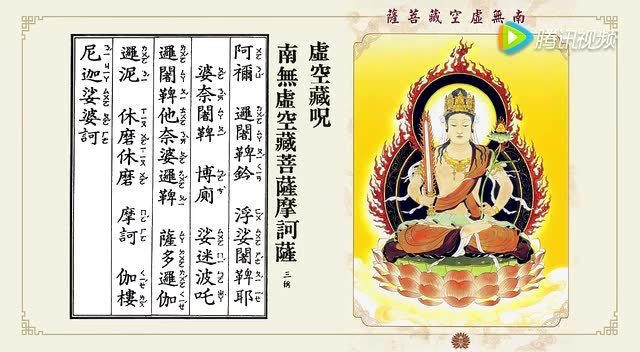 南無虛空藏菩薩
腾讯视频
虛空藏呪
南無虛空藏菩薩摩訶薩 三稱
阿禰 邏闍鞞鈐 浮娑闍鞞耶
婆奈闍鞞 博廁 娑迷波吒
邏闍鞞他奈婆邏鞞 薩多邏伽
邏泥 休磨休磨 摩訶 伽樓
尼迦娑婆訶